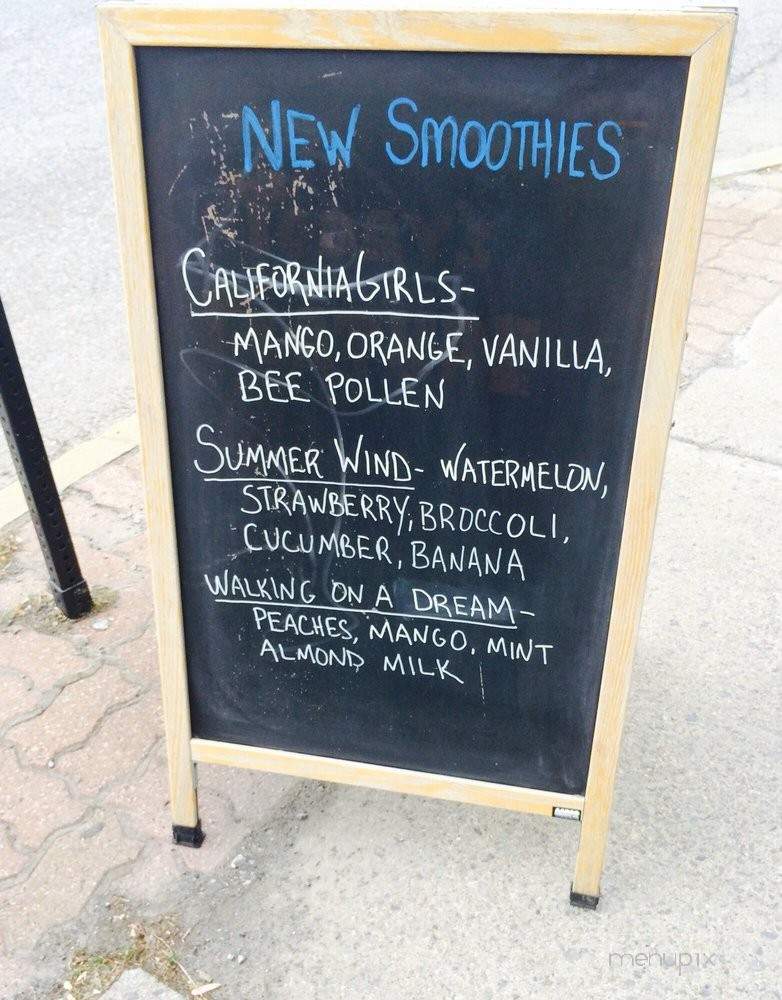 NEW SMOOTHIES
CALIFORNIA GIRLS-
MANGO, ORANGE, VANILLA,
BEE POLLEN
SUMMER WIND- WATERMELON,
STRAWBERRY, BROCCOLI,
CUCUMBER, BANANA
WALKING ON A DREAM-
PEACHES, MANGO, MINT
ALMOND MILK
menupix